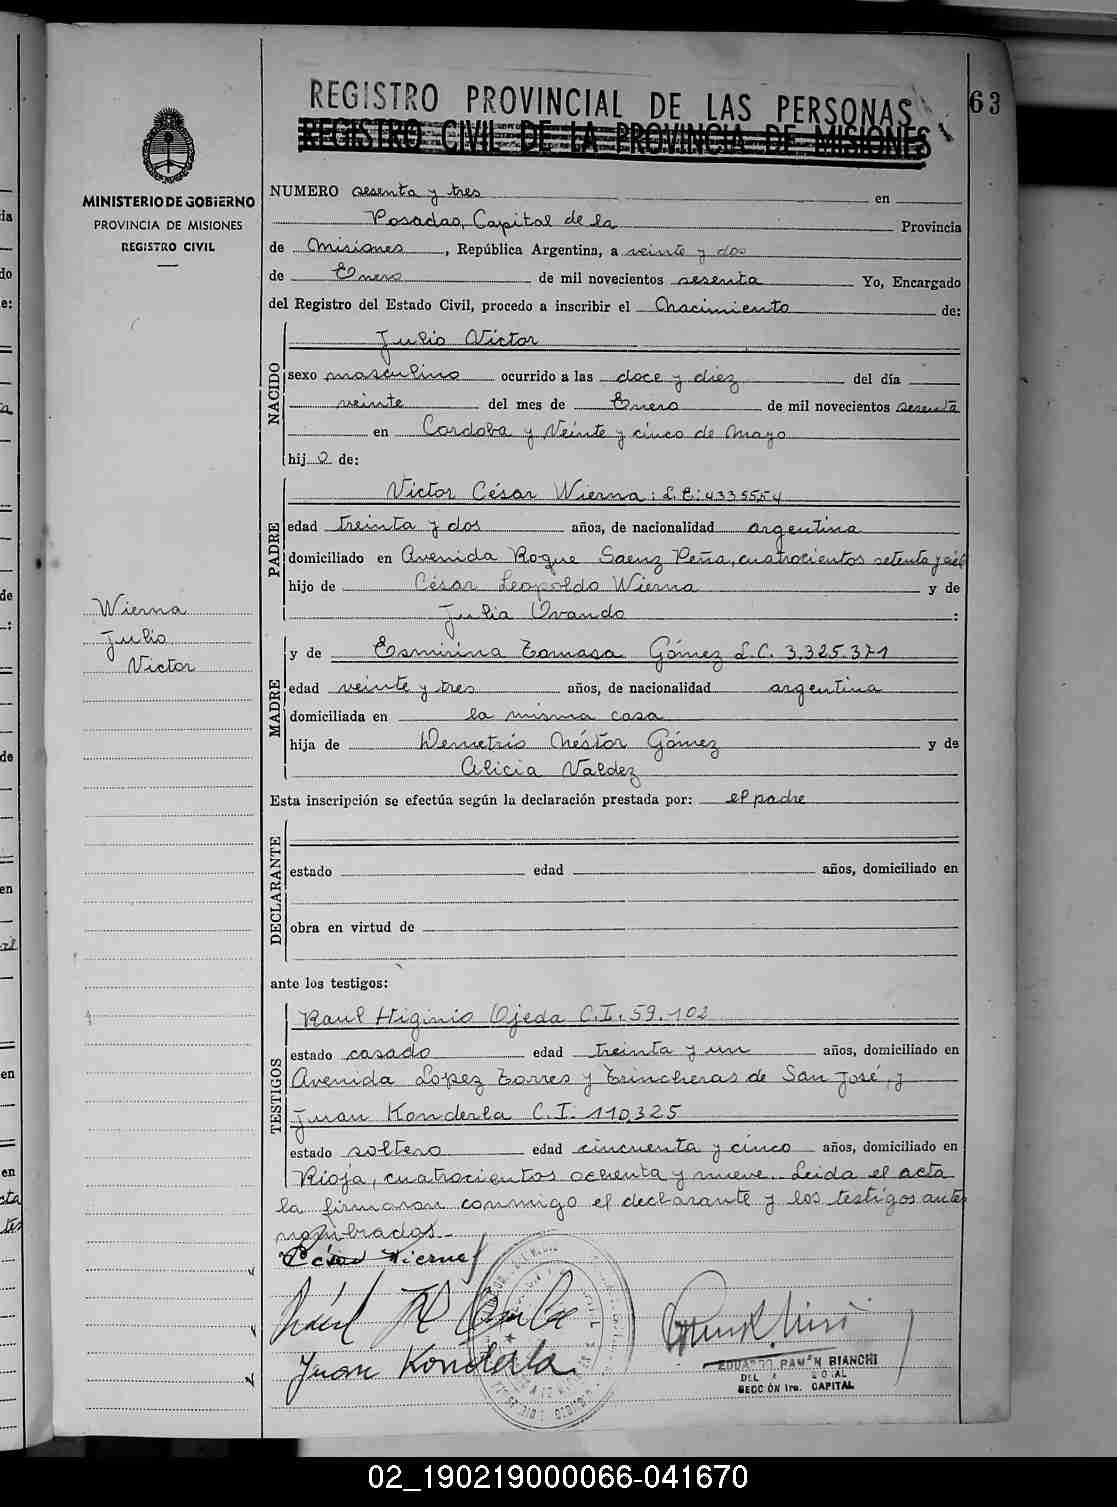 REGISTRO PROVINCIAL DE LAS PERSONAS
REGISTRO CIVIL DE LA PROVINCIA DE MISIONES
63
MINISTERIO DE GOBIERNO
PROVINCIA DE MISIONES
REGISTRO CIVIL
NUMERO sesenta y tres en
Posadas, Capital de la Provincia
de Misiones, República Argentina, a veinte y dos
de Enero de mil novecientos sesenta Yo, Encargado
del Registro del Estado Civil, procedo a inscribir el Nacimiento de:
NACIDO
Julio Victor
sexo masculino ocurrido a las doce y diez del día
veinte del mes de Enero de mil novecientos sesenta
en Cordoba y Veinte y cinco de Mayo
hijo de:
PADRE
Victor César Wierna: L.E: 4335554
edad treinta y dos años, de nacionalidad argentina
domiciliado en Avenida Roque Saenz Peña, cuatrocientos setenta y
hijo de César Leopoldo Wierna y de
Julia Ovando :
Wierna
Julio
Victor
MADRE
y de Esmirina Tomasa Gómez L.C. 3.325.371
edad veinte y tres años, de nacionalidad argentina
domiciliada en la misma casa
hija de Demetrio Néstor Gómez y de
Alicia Valdez
Esta inscripción se efectúa según la declaración prestada por: el padre
DECLARANTE
estado edad años, domiciliado en
obra en virtud de
ante los testigos:
TESTIGOS
Raul Higinio Ojeda C.I. 59.102
estado casado edad treinta y un años, domiciliado en
Avenida Lopez Torres y Trincheras de San José, y
Juan Konderla C.I. 110325
estado soltero edad cincuenta y cinco años, domiciliado en
Rioja, cuatrocientos ochenta y nueve. Leida el acta
la firmaron conmigo el declarante y los testigos antes
nombrados.
César Wierna
Juan Konderla
EDUARDO RAMÓN BIANCHI
SECCIÓN 1ra. CAPITAL
02_190219000066-041670